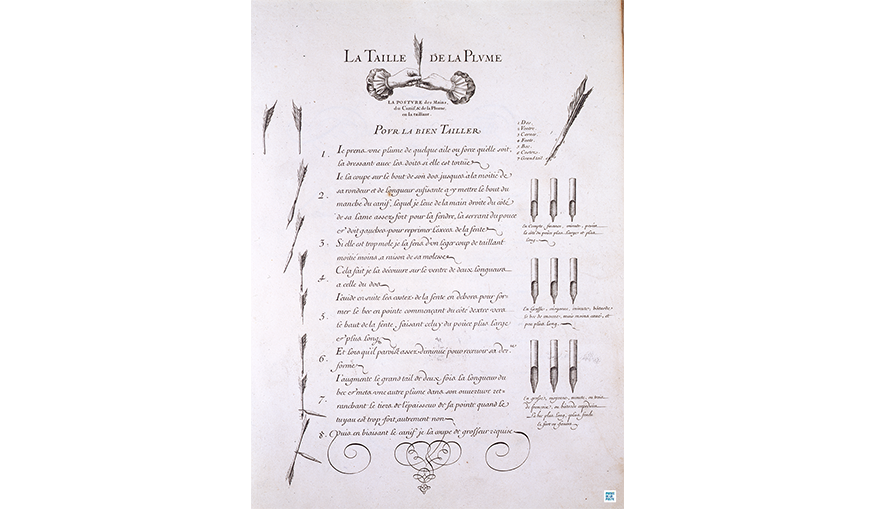 LA TAILLE DE LA PLVME
LA POSTVRE des Mains,
du Canif, & de la Plume
en la taillant.
POVR LA BIEN TAILLER
1 Dos.
2 Ventre.
3 Corne.
4 Fente.
5 Bec.
6 Costez.
7 Grand tail
1. Ie prens vne plume de quelque aile ou force qu'elle soit,
la dressant avec les doits si elle est tortüe
Ie la coupe sur le bout de son dos, jusques à la moitié de
2. sa rondeur et de longueur sufisante a y mettre le bout du
manche du canif, lequel je leue de la main droite du côté
de sa lame assez fort pour la fendre, la serrant du pouce
& doit gauches pour reprimer l'exces de la fente
3. Si elle est trop mole je la fens d'un leger coup de taillant
moitié moins a raison de sa molesse
4. Cela fait je la découure sur le ventre de deux longueurs
a celle du dos
I'euide en suite les costez de la fente en dehors pour for-
5. mer le bec en pointe commençant du côté dextre vers
le haut de la fente, faisant celuy du pouce plus large
& plus long
6. Et lors qu'il paroist assez diminué pour receuoir sa der.re
forme
I'augmente le grand tail de deux fois la longueur du
7. bec & mets une autre plume dans son ouuerture ret-
ranchant le tiers de l'épaisseur de sa pointe quand le
tuyau est trop fort, autrement non
8. Puis en biaisant le canif je la coupe de grosseur requise
le côté du poulce plus large et plus
long
En Grosse, moyenne, minute, bâtarde
le bec de mesme, mais moins caué, et
peu plus long
En grosse, moyenne, minute,
le bec plus long,